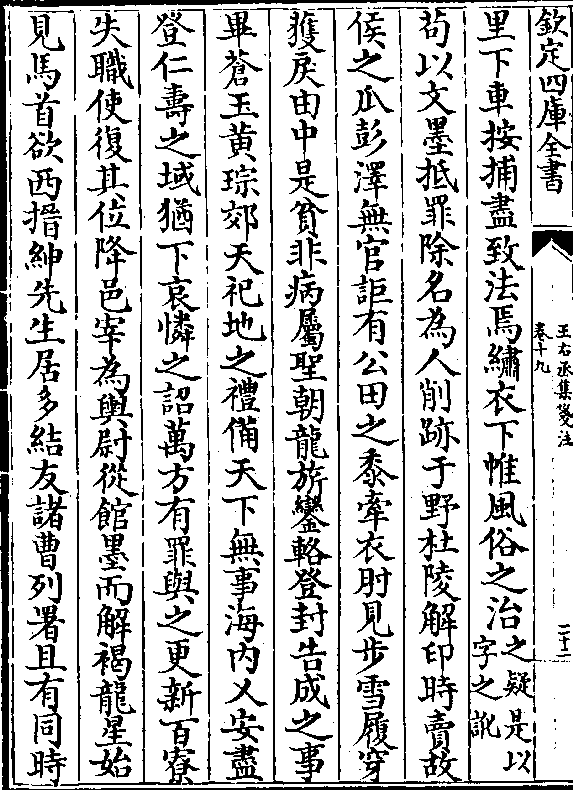 欽定四庫全書
王右丞集箋注
卷十九
二十二
里下車按捕盡致法焉繡衣下帷風俗之治之疑是以字之訛
苟以文墨抵罪除名為人削跡于野杜陵解印時賣故
侯之瓜彭澤無官詎有公田之黍牽衣肘見步雪履穿
獲戾由中是貧非病屬聖朝龍旂鑾輅登封告成之事
畢蒼玉黃琮郊天祀地之禮備天下無事海内乂安盡
登仁壽之域猶下哀憐之詔萬方有罪與之更新百寮
失職使復其位降邑宰為輿尉從館墨而解褐龍星始
見馬首欲西搢紳先生居多結友諸曹列署且有同時